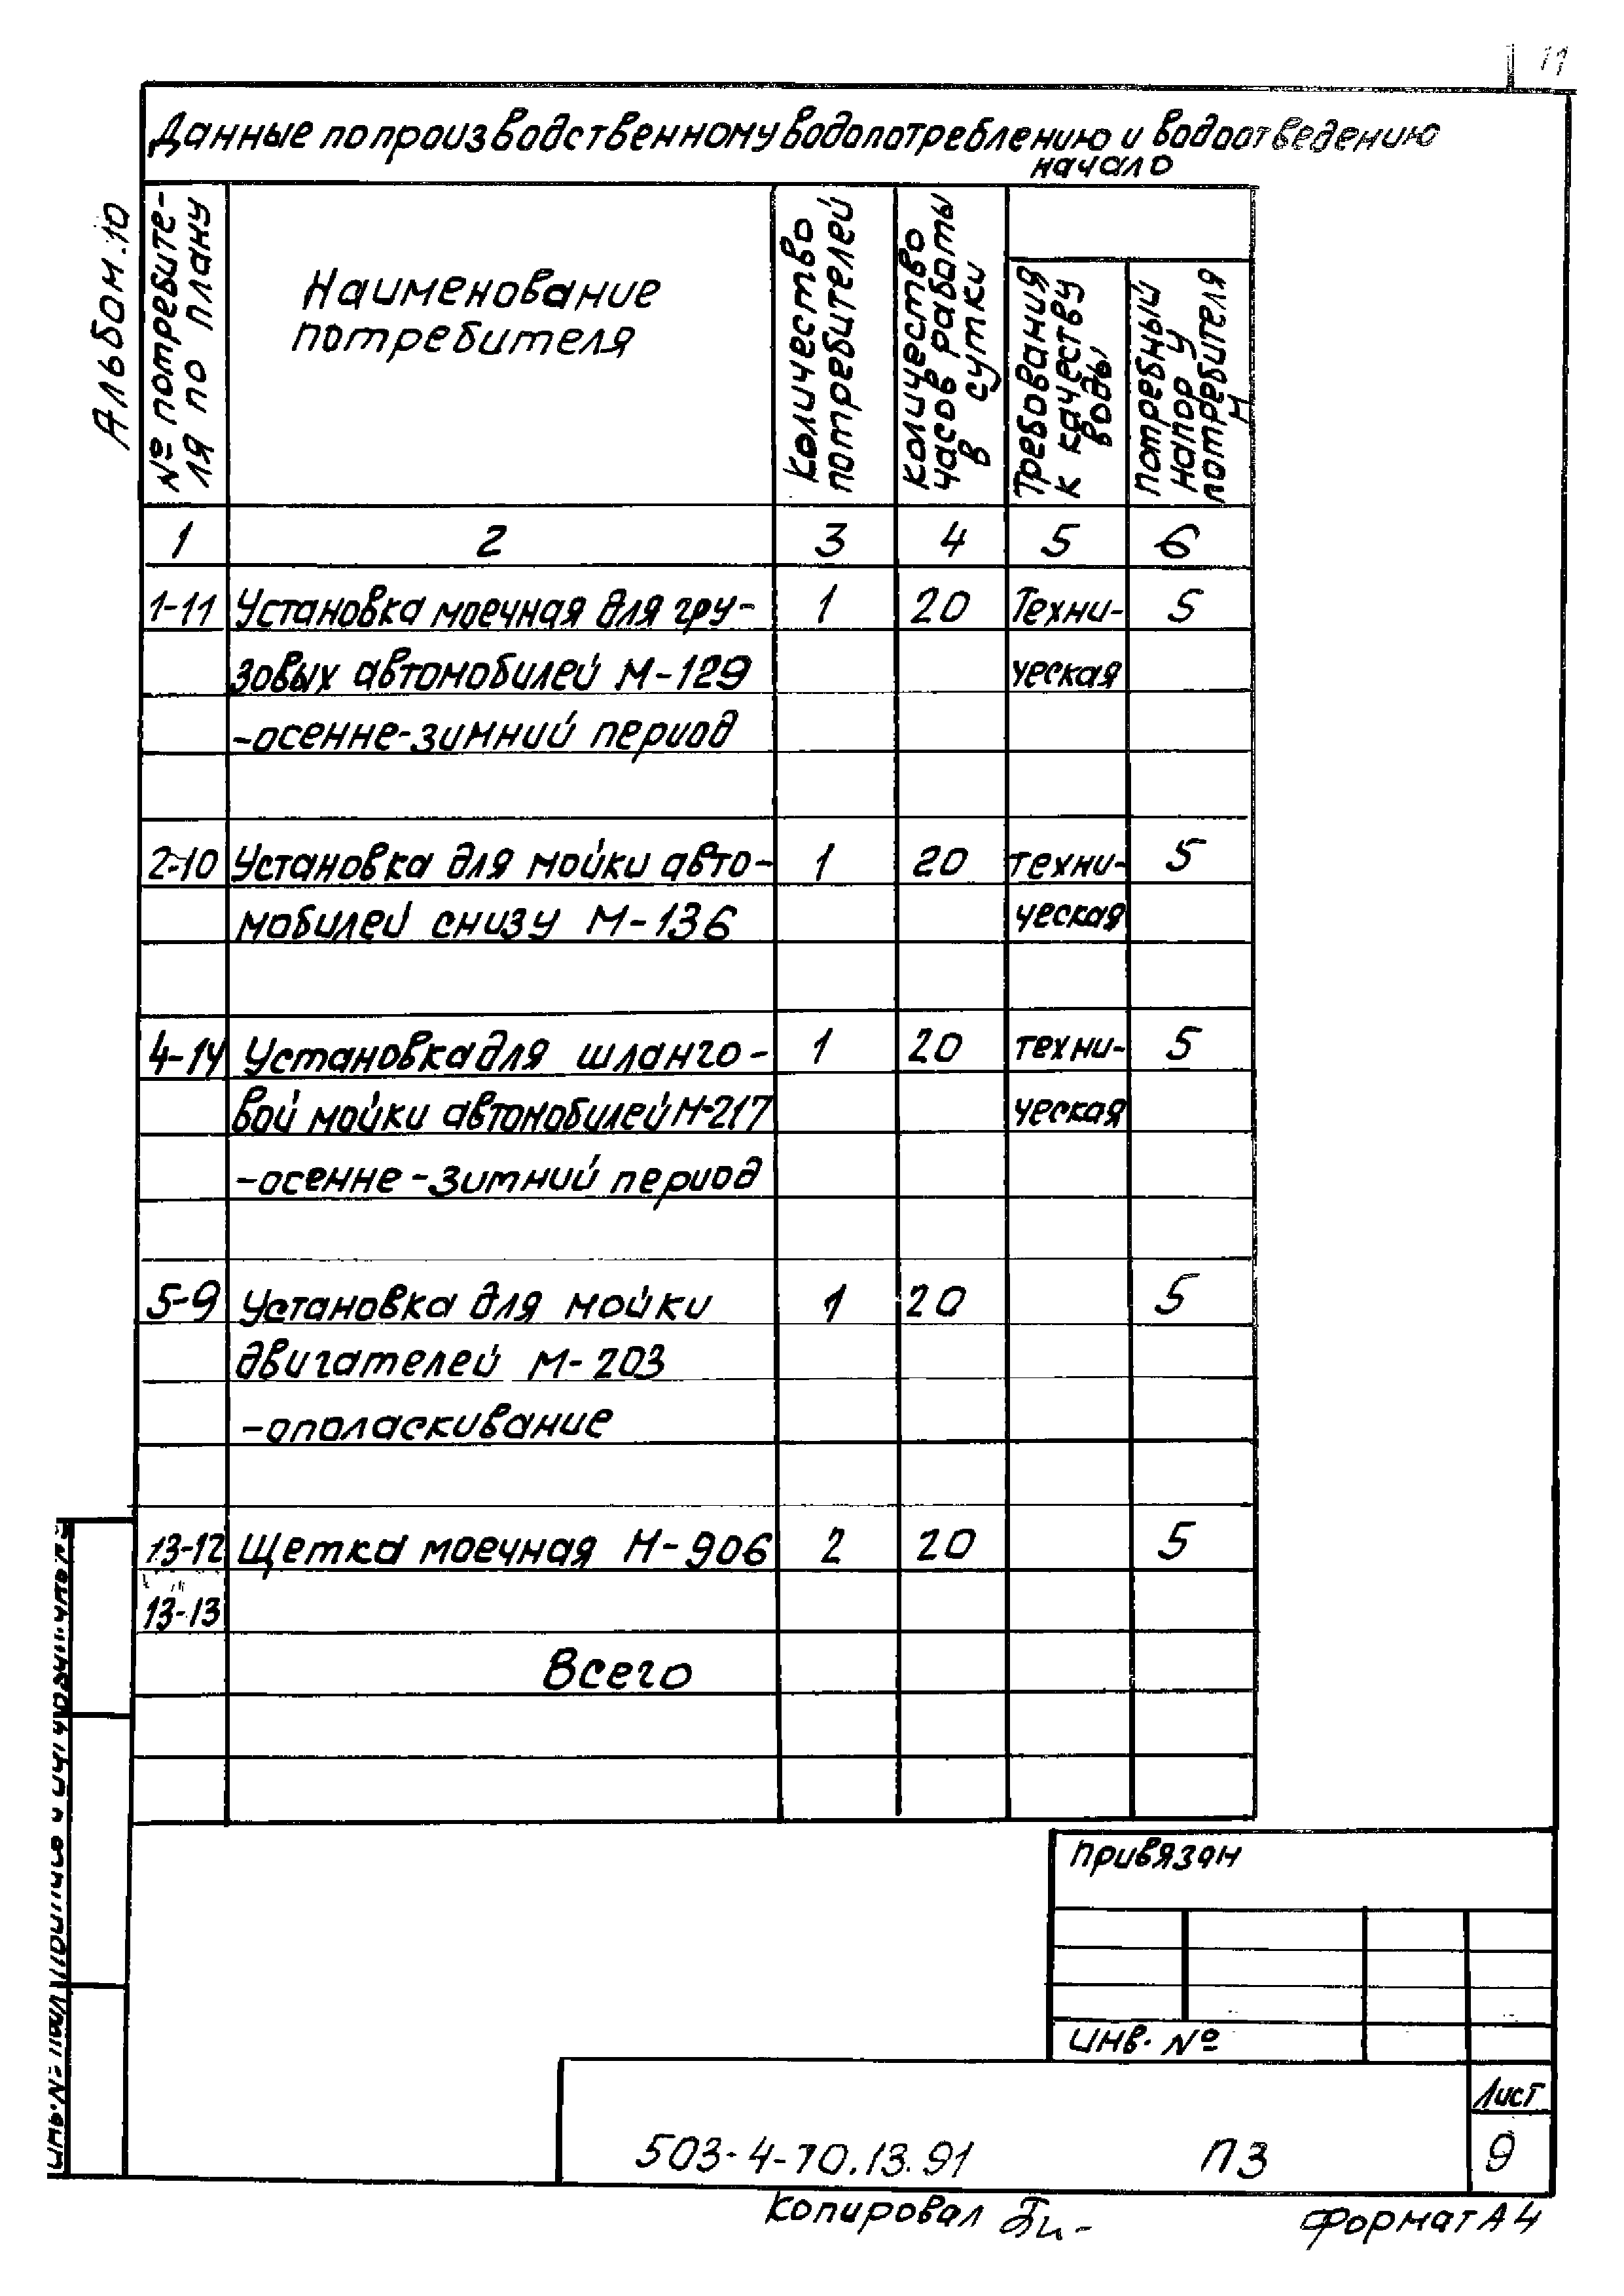 11
Альбом.10
Данные по производственному водопотреблению и водоотведению
начало
№ потребите-
ля по плану
Наименование
потребителя
Количество
потребителей
Количество
часов работы
в сутки
Требования
к качеству
воды
Потребный
напор у
потребителя
М
1 2 3 4 5 6
1-11 Установка моечная для гру- 1 20 Техни- 5
зовых автомобилей М-129 ческая
-осенне-зимний период
2-10 Установка для мойки авто- 1 20 техни- 5
мобилей снизу М-136 ческая
4-14 Установка для шланго- 1 20 техни- 5
вой мойки автомобилей М-217 ческая
-осенне-зимний период
5-9 Установка для мойки 1 20 5
двигателей М-203
-ополаскивание
13-12 Щетка моечная М-906 2 20 5
13-13
Всего
привязан
инв. №
Лист
503-4-70.13.91 ПЗ 9
Копировал
Формат А4